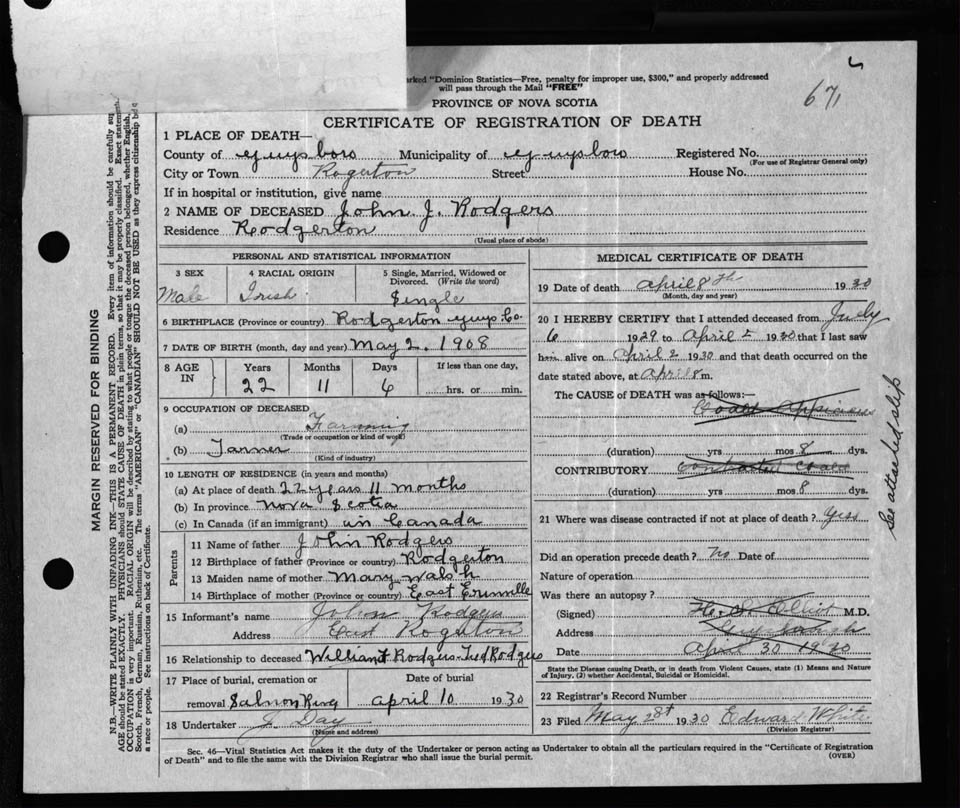 arked "Dominion Statistics—Free, penalty for improper use, $300," and properly addressed
will pass through the Mail "FREE"
671
PROVINCE OF NOVA SCOTIA
CERTIFICATE OF REGISTRATION OF DEATH
1 PLACE OF DEATH—
County of Guysboro Municipality of Guysboro Registered No.
(For use of Registrar General only)
City or Town Rogerton Street House No.
If in hospital or institution, give name
2 NAME OF DECEASED John J. Rodgers
Residence Rodgerton
(Usual place of abode)
PERSONAL AND STATISTICAL INFORMATION
3 SEX 4 RACIAL ORIGIN 5 Single, Married, Widowed or Divorced. (Write the word)
Male Irish Single
6 BIRTHPLACE (Province or country) Rodgerton Guys. Co.
7 DATE OF BIRTH (month, day and year) May 2. 1908
8 AGE IN Years Months Days If less than one day,
22 11 6 hrs. or min.
9 OCCUPATION OF DECEASED
(a) Farming
(Trade or occupation or kind of work)
(b) Farmer
(Kind of industry)
10 LENGTH OF RESIDENCE (in years and months)
(a) At place of death 22 years 11 months
(b) In province Nova Scotia
(c) In Canada (if an immigrant) in Canada
Parents
11 Name of father John Rodgers
12 Birthplace of father (Province or country) Rodgerton
13 Maiden name of mother Mary Walsh
14 Birthplace of mother (Province or country) East Erinville
15 Informant's name John Rodgers
Address East Rogerton
16 Relationship to deceased William J Rodgers Rodgers
17 Place of burial, cremation or removal Date of burial
Salmon River April 10 1930
18 Undertaker J Day
(Name and address)
MEDICAL CERTIFICATE OF DEATH
19 Date of death April 8th 1930
(Month, day and year)
20 I HEREBY CERTIFY that I attended deceased from July
6 1929 to April 2 1930 that I last saw
him alive on April 2 1930 and that death occurred on
date stated above, at April 8 m.
The CAUSE of DEATH was as follows:—
(duration) yrs mos 8 dys.
CONTRIBUTORY Contracted
(duration) yrs mos 8 dys.
See attached slip
21 Where was disease contracted if not at place of death? Yess
Did an operation precede death? No Date of
Nature of operation
Was there an autopsy?
(Signed) M.D.
Address
Date April 30 1930
State the Disease causing Death, or in death from Violent Causes, state (1) Means and Nature
of Injury, (2) whether Accidental, Suicidal or Homicidal.
22 Registrar's Record Number
23 Filed May 28t 1930 Edward White
(Division Registrar)
Sec. 46—Vital Statistics Act makes it the duty of the Undertaker or person acting as Undertaker to obtain all the particulars required in the "Certificate of Registration
of Death" and to file the same with the Division Registrar who shall issue the burial permit.
(OVER)
MARGIN RESERVED FOR BINDING
N.B.—WRITE PLAINLY WITH UNFADING INK—THIS IS A PERMANENT RECORD. Every item of information should be carefully sup
AGE should be stated EXACTLY. PHYSICIANS should STATE CAUSE OF DEATH in plain terms, so that it may be properly classified. Exact statement
OCCUPATION is very important. RACIAL ORIGIN will be described by stating to what people or tongue the deceased person belonged, whether English,
Scotch, French, German, Russian, Ruthenian, etc. The terms "AMERICAN" or "CANADIAN" SHOULD NOT BE USED as they express citizenship
a race or people. See instructions on back of Certificate.